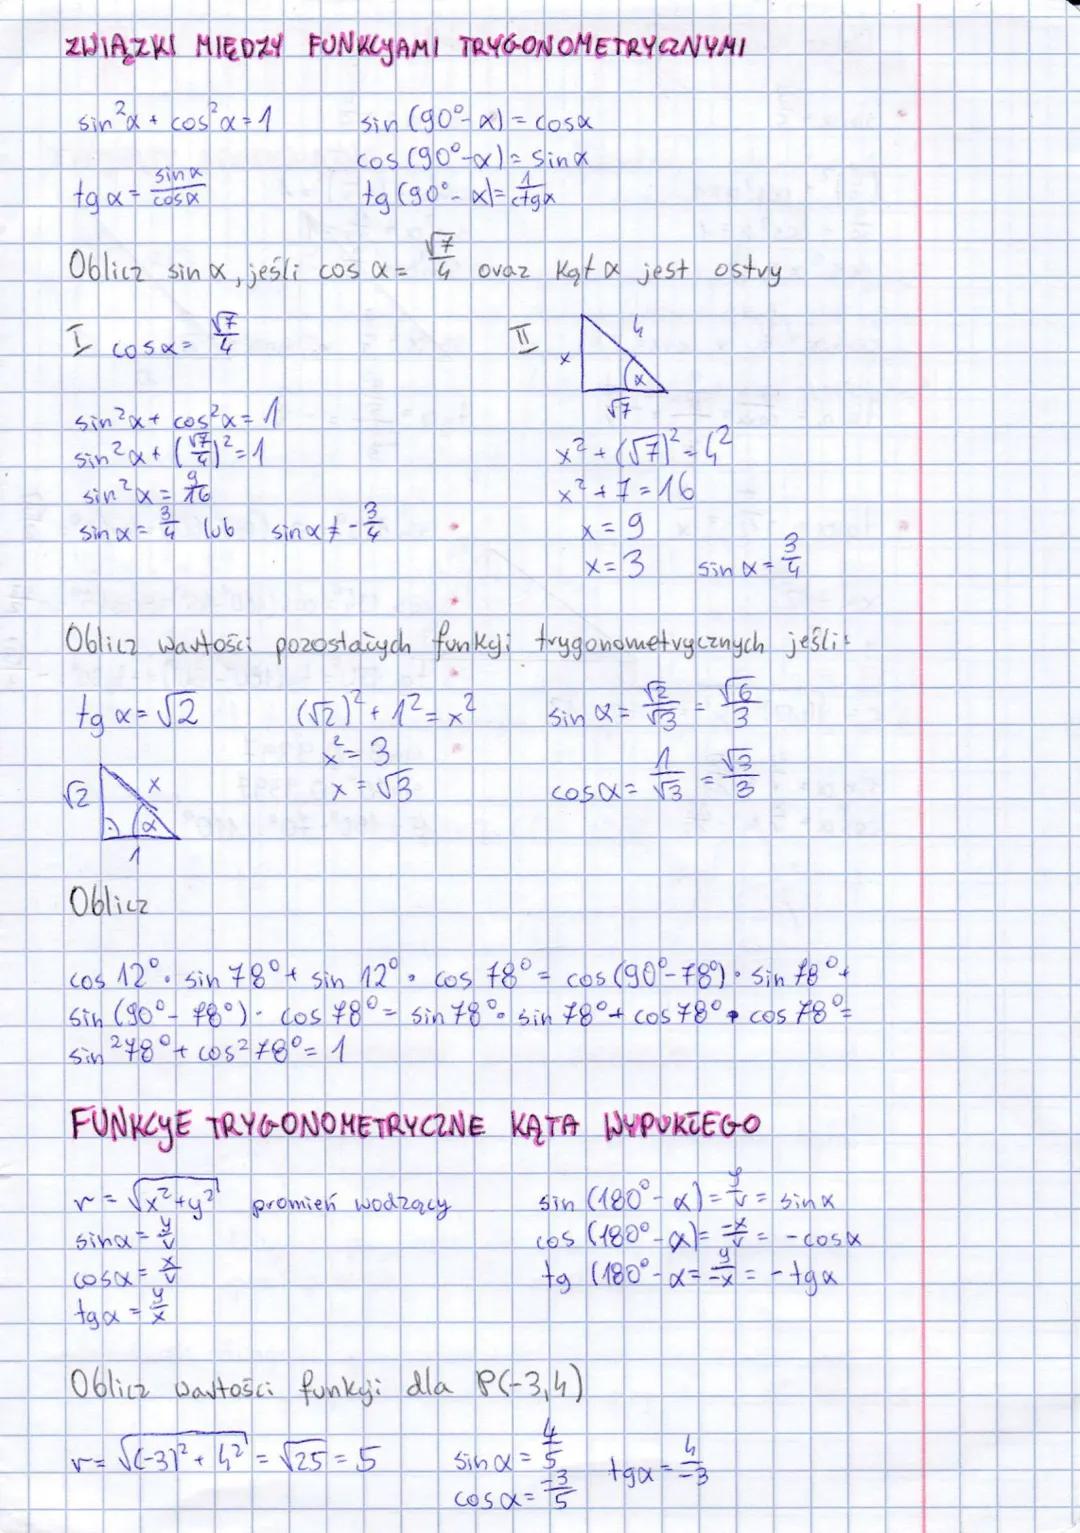 ZWIĄZKI MIĘDZY FUNKCJAMI TRYGONOMETRYCZNYMI
sin²α + cos²α = 1
sin (90° - α) = cosα
cos (90° - α) = sinα
tg α = sinα/cosα
tg (90° - α) = 1/ctgα
Oblicz sin α, jeśli cos α = √7/4 oraz kąt α jest ostry
I cosα = √7/4
sin²α + cos²α = 1
sin²α + (√7/4)² = 1
sin²α = 9/16
sin α = 3/4 lub sin α ≠ -3/4
II
4
x
α
√7
x² + (√7)² = 4²
x² + 7 = 16
x = 9
x = 3 sin α = 3/4
Oblicz wartości pozostałych funkcji trygonometrycznych jeśli:
tg α = √2
√2
x
α
1
(√2)² + 1² = x²
x² = 3
x = √3
sin α = √2/√3 = √6/3
cosα = 1/√3 = √3/3
Oblicz
cos 12° · sin 78° + sin 12° · cos 78° = cos (90° - 78°) · sin 78° +
sin (90° - 78°) · cos 78° = sin 78° · sin 78° + cos 78° · cos 78° =
sin²78° + cos²78° = 1
FUNKCJE TRYGONOMETRYCZNE KĄTA WYPUKŁEGO
r = √x²+y² promień wodzący
sinα = y/r
cosα = x/r
tgα = y/x
sin (180° - α) = y/r = sinα
cos (180° - α) = -x/r = -cosα
tg (180° - α = y/-x = -tgα
Oblicz wartości funkcji dla P(-3,4)
r = √(-3)² + 4² = √25 = 5
sin α = 4/5
cos α = -3/5
tgα = 4/-3